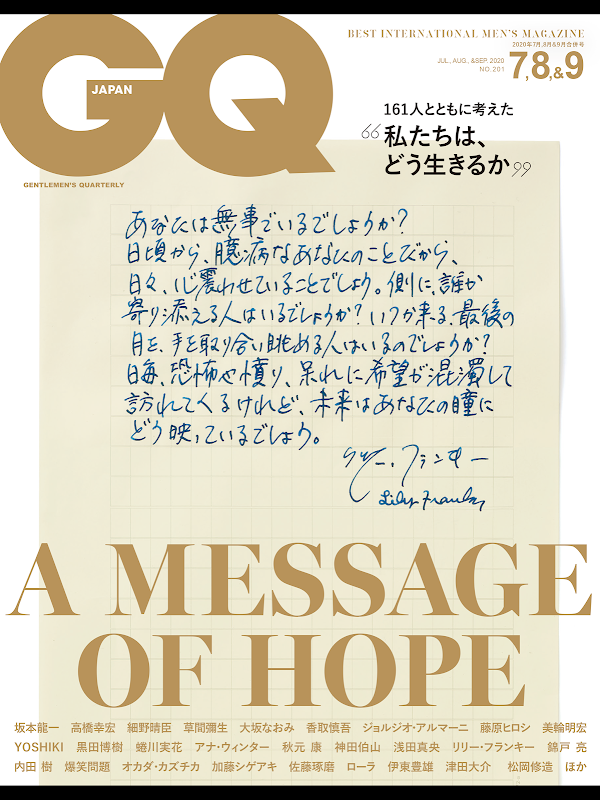 GQ
JAPAN
GENTLEMEN'S QUARTERLY
BEST INTERNATIONAL MEN'S MAGAZINE
2020年7月,8月&9月合併号
JUL., AUG., &SEP. 2020
NO.201
7,8,&9
161人とともに考えた
“私たちは、
どう生きるか”
あなたは無事でいるでしょうか？
日頃から、臆病なあなたのことだから、
日々、心震わせていることでしょう。側に、誰か
寄り添える人はいるでしょうか？いつか来る、最後の
月を、手を取り合い眺める人はいるのでしょうか？
日毎、恐怖や憤り、呆れに希望が混濁して
訪れてくるけれど、未来はあなたの瞳に
どう映っているでしょう。
リリー・フランキー
Lily Franky
A MESSAGE
OF HOPE
坂本龍一 高橋幸宏 細野晴臣 草間彌生 大坂なおみ 香取慎吾 ジョルジオ・アルマーニ 藤原ヒロシ 美輪明宏
YOSHIKI 黒田博樹 蜷川実花 アナ・ウィンター 秋元 康 神田伯山 浅田真央 リリー・フランキー 錦戸 亮
内田 樹 爆笑問題 オカダ・カズチカ 加藤シゲアキ 佐藤琢磨 ローラ 伊東豊雄 津田大介 松岡修造 ほか